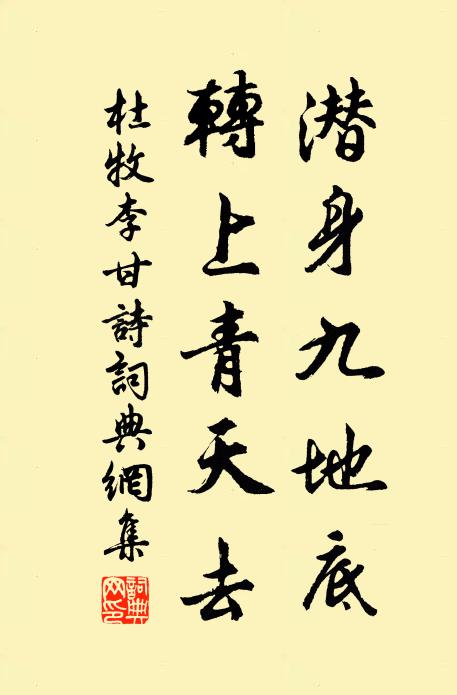 潜身九地底
轉上青天去
杜牧李甘詩詞典網集
詞典網印